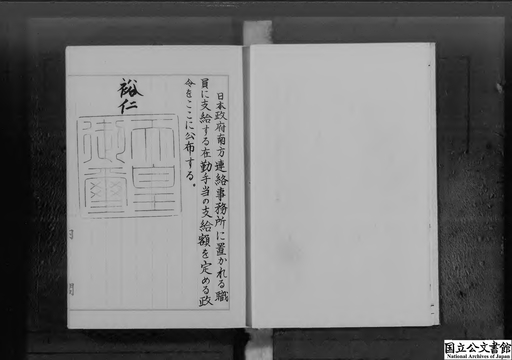 日本政府南方連絡事務所に置かれる職
員に支給する在勤手当の支給額を定める政
令をここに公布する。
裕仁
天皇
御璽
国立公文書館
National Archives of Japan